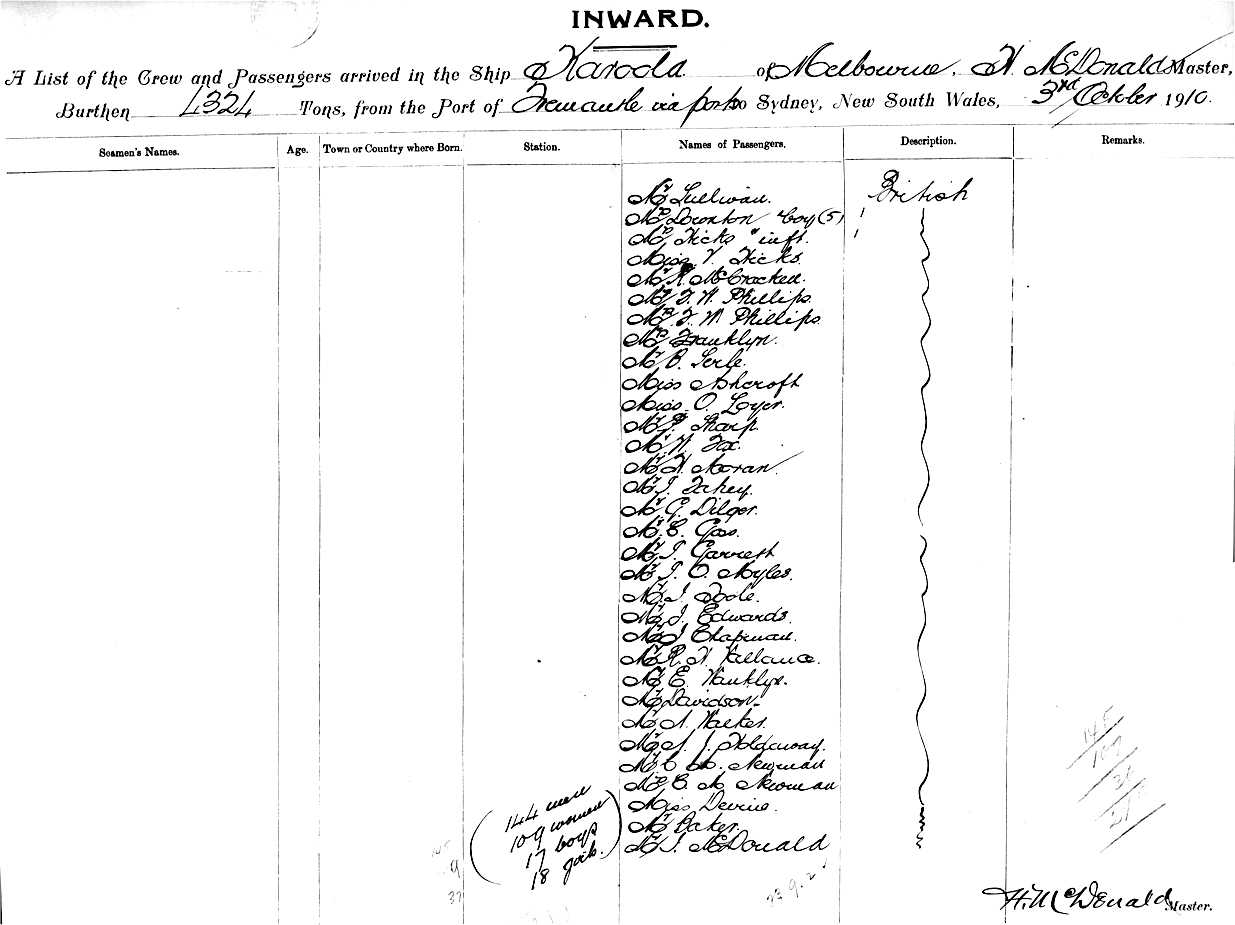 INWARD.
A List of the Crew and Passengers arrived in the Ship Karoola of Melbourne, H. McDonald Master,
Burthen 4324 Tons, from the Port of Fremantle via ports to Sydney, New South Wales, 3rd October 1910.
Seamen's Names. Age. Town or Country where Born. Station. Names of Passengers. Description. Remarks.
Mr Sullivan. British
Mrs Downton boy (5)
Mrs Hicks " inft.
Miss V. Hicks
Mr R. McCracken.
Mr F. W. Phillips.
Mrs F. W. Phillips.
Mrs Franklyn.
Mr B. Serle.
Miss Ashcroft
Miss O. Loyer.
Mr P. Sharp
Mr W. Fox.
Mr H. Moran.
Mr J. Fahey.
Mr G. Dilger.
Mr E. Goss.
Mr J. Garrett
Mr J. O. Myles.
Mr J. Toole.
Mr J. Edwards.
Mr J Chapman.
Mr R. H. Vallance.
Mr E. Wanklyn.
Mr Davidson
Mr A. Walker.
Mr A. J. Holdaway.
Mr C. A. Newman
Mrs C. A. Newman
Miss Devine.
Mr Baker.
Mr J. McDonald
144 men
109 women
17 boys
18 girls.
H. McDonald Master.